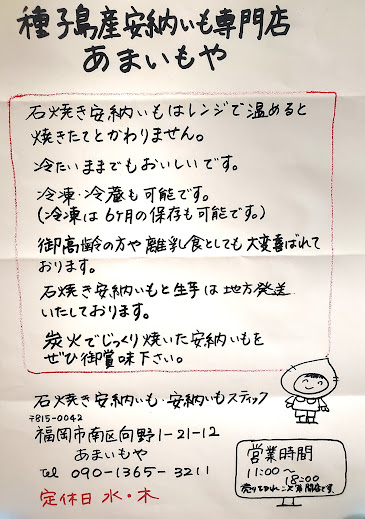 種子島産安納いも専門店
あまいもや
石焼き安納いもはレンジで温めると
焼きたてとかわりません。
冷たいままでもおいしいです。
冷凍・冷蔵も可能です。
(冷凍は6ケ月の保存も可能です。)
御高齢の方や離乳食としても大変喜ばれて
おります。
石焼き安納いもと生芋は地方発送
いたしております。
炭火でじっくり焼いた安納いもを
ぜひ御賞味下さい。
石焼き安納いも・安納いもスティック
〒815-0042
福岡市南区向野1-21-12
あまいもや
Tel 090-1365-3211
定休日 水・木
営業時間
11:00~
18:00
売り切れ次第閉店です